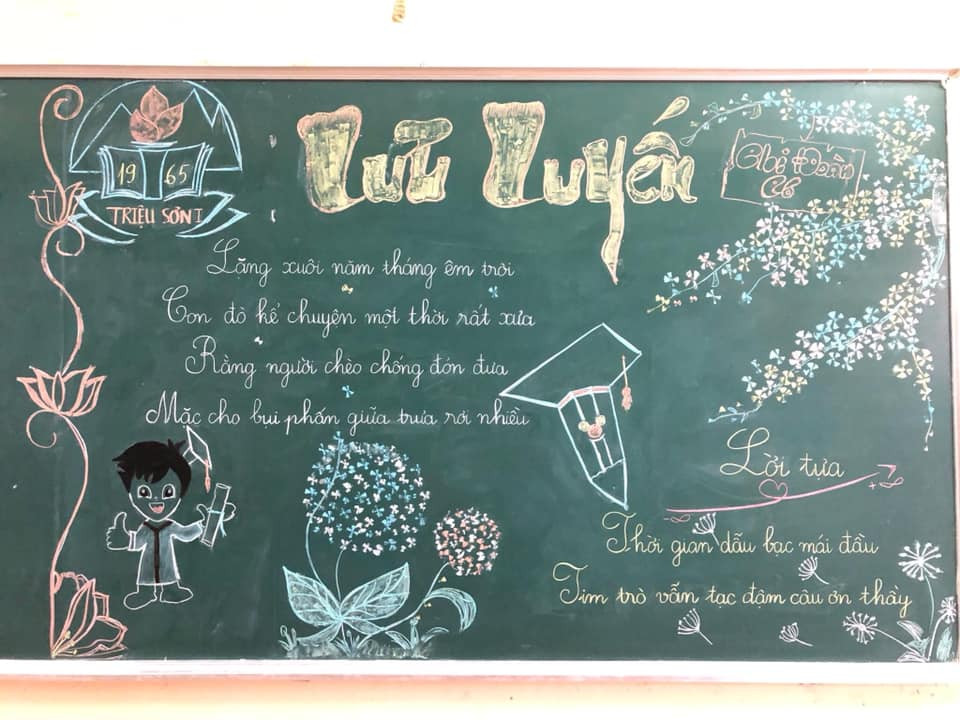 1965
TRIỆU SƠN I
Lưu Luyến
Chi Đoàn
Lặng xuôi năm tháng êm trôi
Con đò kể chuyện một thời rất xưa
Rằng người chèo chống đón đưa
Mặc cho bụi phấn giữa trưa rơi nhiều
Lời tựa
-∞
+∞
Thời gian dẫu bạc mái đầu
Tim trò vẫn tạc đậm câu ơn thầy